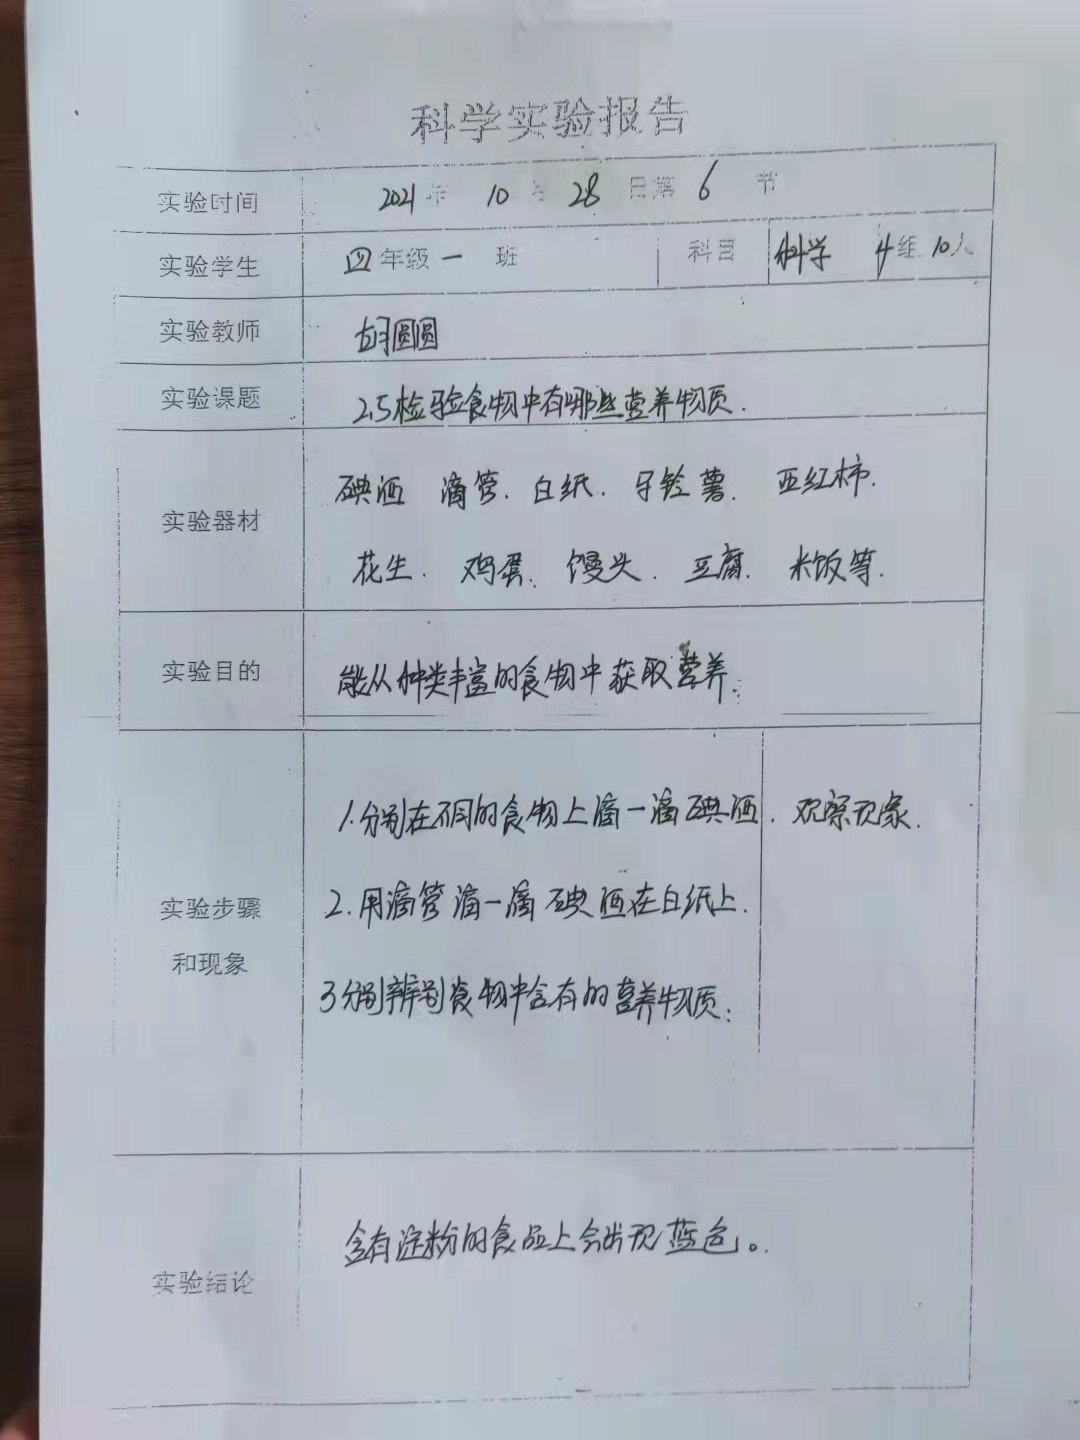 科学实验报告
实验时间 2021年 10月 28日第 6 节
实验学生 四年级一 班 科目 科学 4组 10人
实验教师 胡圆圆
实验课题 2.5检验食物中有哪些营养物质.
实验器材 碘酒 滴管. 白纸. 牙铃薯. 西红柿.
花生. 鸡蛋. 馒头. 豆腐. 米饭等.
实验目的 能从种类丰富的食物中获取营养.
实验步骤和现象
1.分别在不同的食物上滴一滴碘酒. 观察现象.
2.用滴管滴一滴碘酒在白纸上.
3分别辨别食物中含有的营养物质.
实验结论 含有淀粉的食品上会出现蓝色。